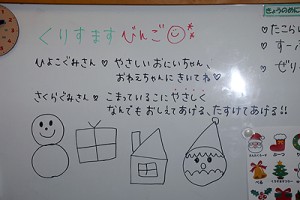 くりすます びんご
ひよこぐみさん♡ やさしいおにいちゃん、
おねえちゃんにきいてね♡
さくらぐみさん♡ こまっているこにやさしく
なんでもおしえてあげる、たすけてあげる!!
きょうのめに
♡たこらい
♡すーぷ
♡ぜり